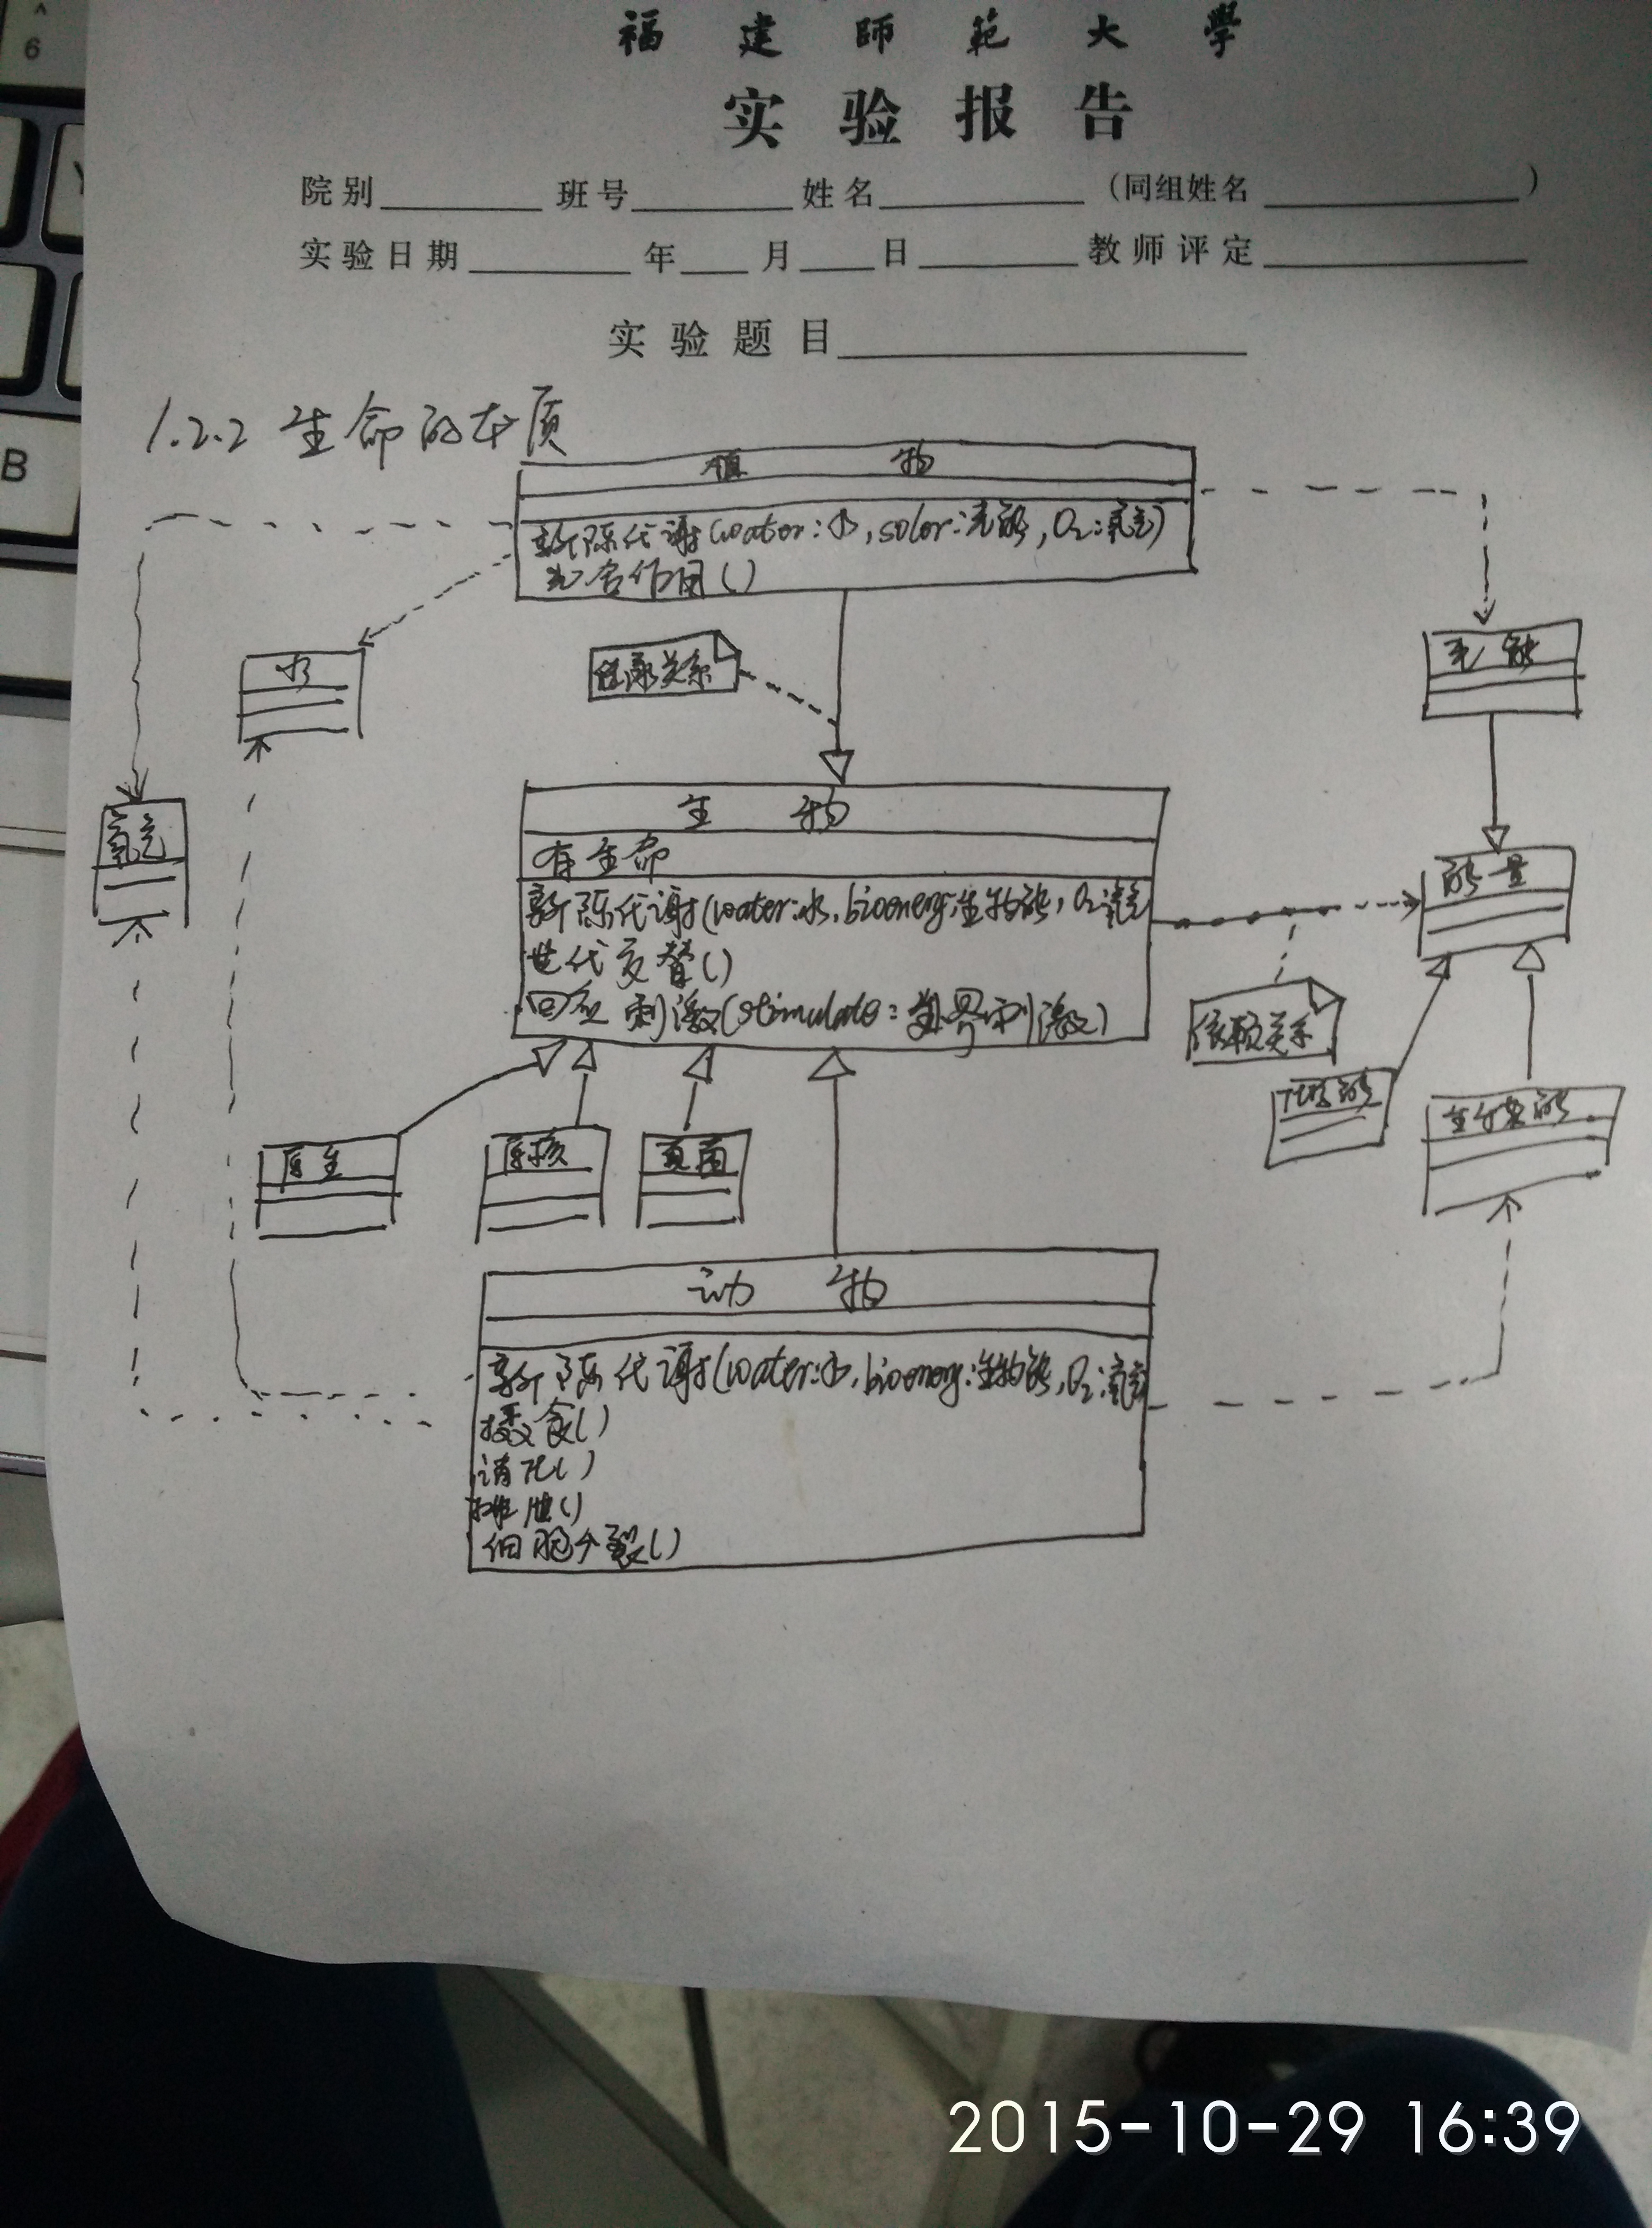 ^
6
Y
B
福建師範大學
实验报告
院别 班号 姓名 (同组姓名 )
实验日期 年 月 日 教师评定
实验题目
1.2.2 生命的本质
植物
新陈代谢(water:水,solor:光能,O2:氧气)
光合作用()
水
继承关系
光能
生物
有生命
新陈代谢(water:水,bioenerg:生物能,O2:氧气
世代交替()
回应刺激(stimulate:外界刺激)
氧气
能量
依赖关系
化学能
生物能
原生
原核
真菌
动物
新陈代谢(water:水,bioenerg:生物能,O2:氧气
摄食()
消化()
排泄()
细胞分裂()
2015-10-29 16:39